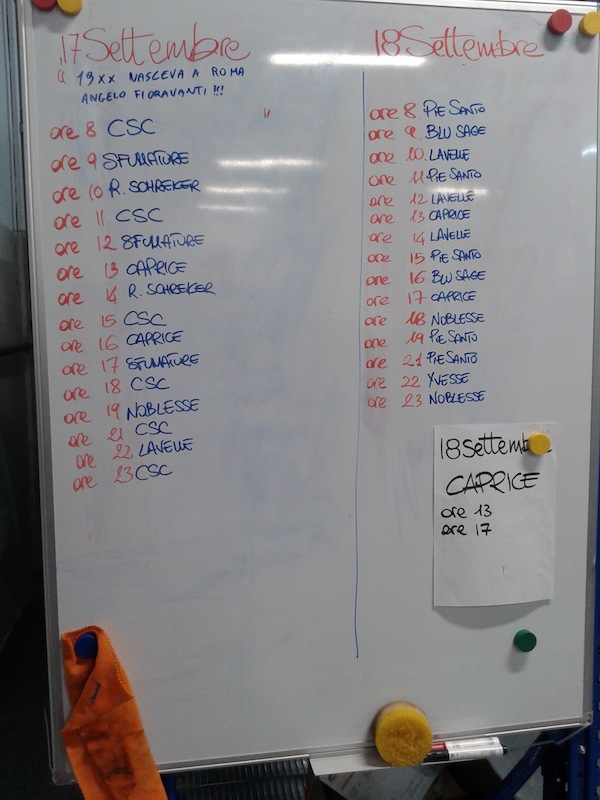 17 Settembre
" 19XX NASCEVA A ROMA
ANGELO FIORAVANTI !!! "
ore 8 CSC
ore 9 SFUMATURE
ore 10 R. SCHREKER
ore 11 CSC
ore 12 SFUMATURE
ore 13 CAPRICE
ore 14 R. SCHREKER
ore 15 CSC
ore 16 CAPRICE
ore 17 SFUMATURE
ore 18 CSC
ore 19 NOBLESSE
ore 21 CSC
ore 22 LAVELLE
ore 23 CSC
18 Settembre
ore 8 PIE SANTO
ore 9 BLU SAGE
ore 10 LAVELLE
ore 11 PIE SANTO
ore 12 LAVELLE
ore 13 CAPRICE
ore 14 LAVELLE
ore 15 PIE SANTO
ore 16 BLU SAGE
ore 17 CAPRICE
ore 18 NOBLESSE
ore 19 PIE SANTO
ore 21 PIE SANTO
ore 22 YVESSE
ore 23 NOBLESSE
18 Settembre
CAPRICE
ore 13
ore 17